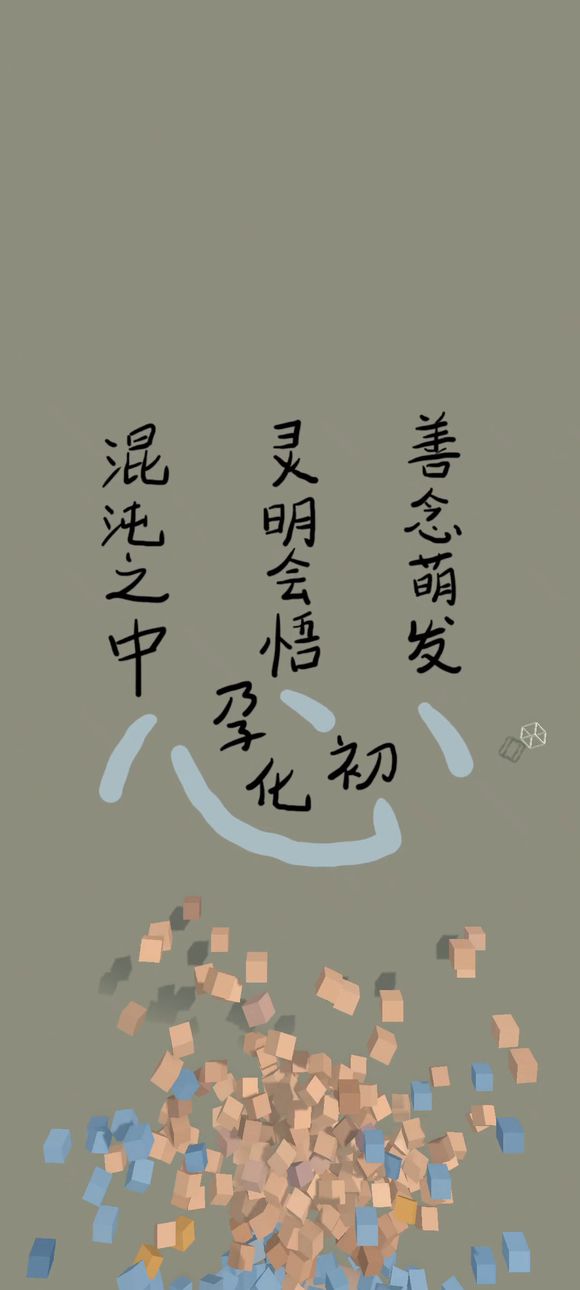 混沌之中
灵明会悟
善念萌发
孕化初
心